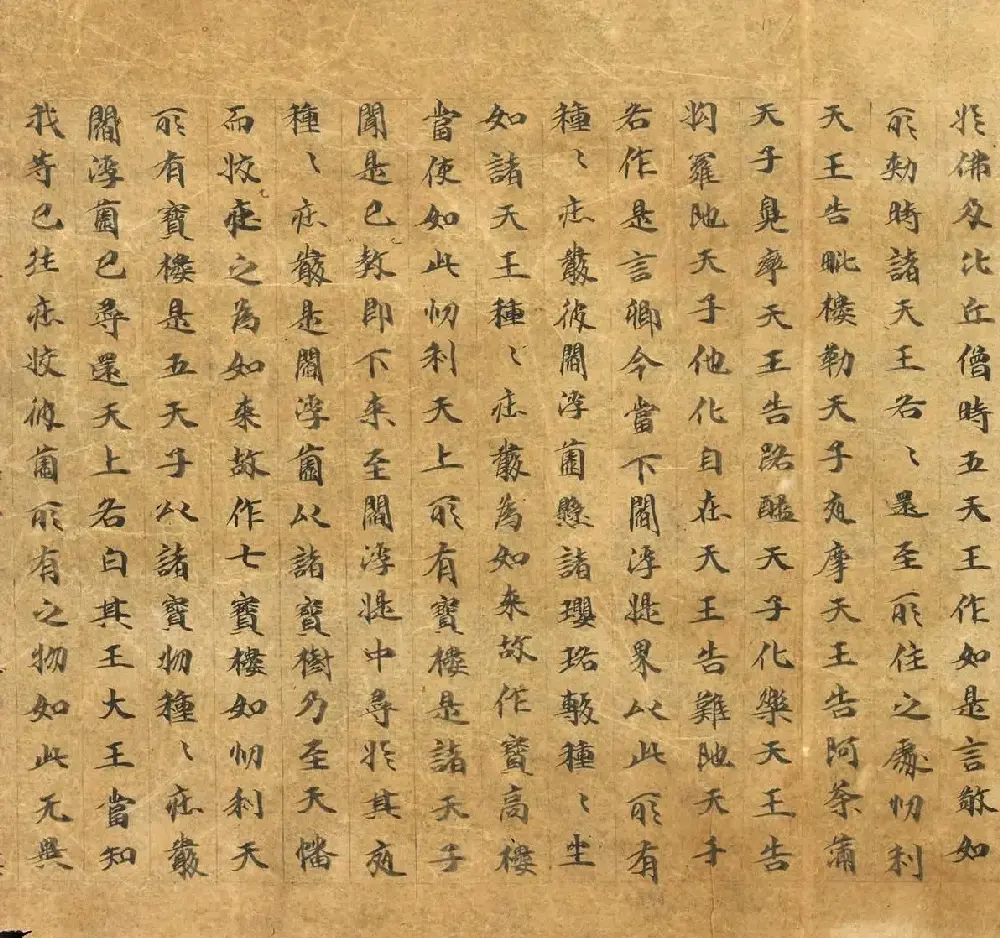 於佛及比丘僧時五天王作如是言敬如
所勑時諸天王各〻還至所住之處忉利
天王告毗樓勒天子夜摩天王告阿荼蒲
天子兜率天王告路醯天子化樂天王告
拘羅吔天子他化自在天王告難吔天子
各作是言卿今當下閻浮提界以此所有
種〻庄嚴彼閻浮薗懸諸瓔珞敷種〻坐
如諸天王種〻庄嚴為如来故作寶高樓
當使如此忉利天上所有寶樓是諸天子
聞是已教即下来至閻浮提中尋於其夜
種〻庄嚴是閻浮薗以諸寶樹乃至天幡
而挍庄之為如来故作七寶樓如忉利天
所有寶樓是五天子以諸寶物種〻庄嚴
閻浮薗已尋還天上各白其王大王當知
我等已往庄挍彼薗所有之物如此无異